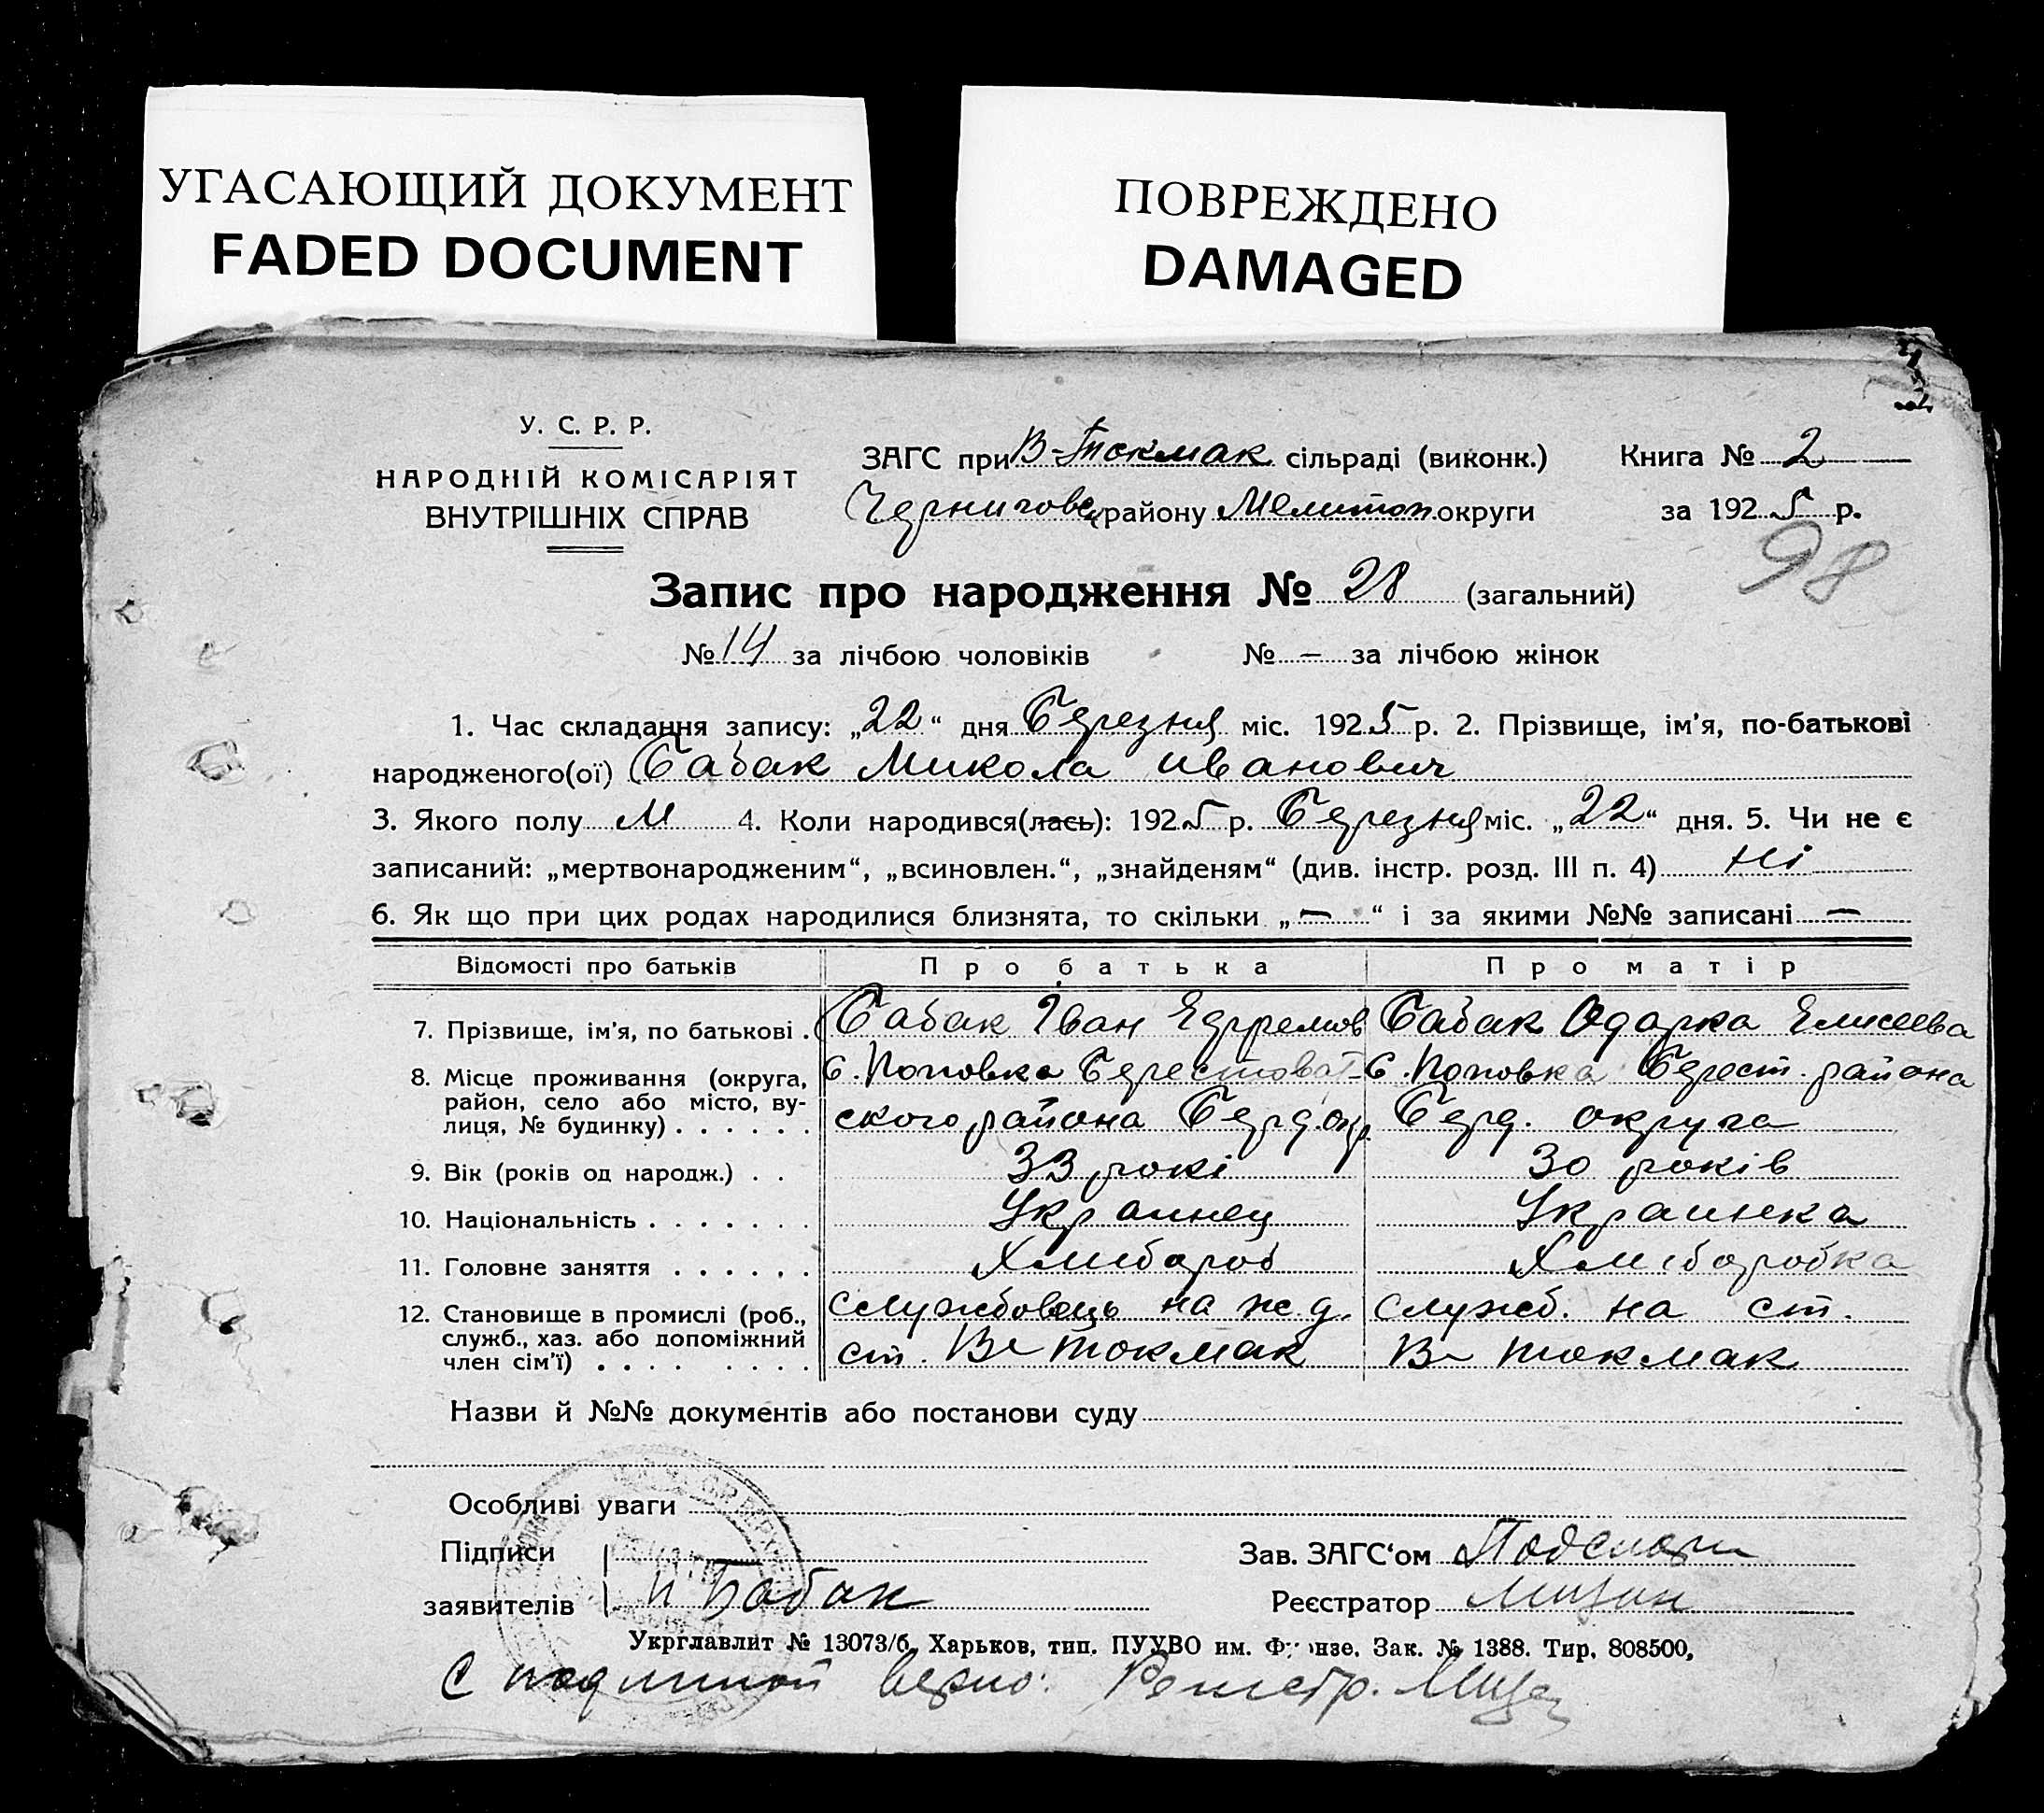 УГАСАЮЩИЙ ДОКУМЕНТ
FADED DOCUMENT
ПОВРЕЖДЕНО
DAMAGED
У. С. Р. Р.
НАРОДНІЙ КОМІСАРІЯТ
ВНУТРІШНІХ СПРАВ
ЗАГС при В-Токмак сільраді (виконк.)
Черниговск району Мелитоп. округи
Книга № 2
за 1925 р.
98
Запис про народження № 28 (загальний)
№ 14 за лічбою чоловіків № – за лічбою жінок
1. Час складання запису: „22“ дня Березня міс. 1925 р. 2. Прізвище, ім'я, по-батькові
народженого(ої) Бабак Микола иванович
3. Якого полу М 4. Коли народився(лась): 1925 р. Березня міс. „22“ дня. 5. Чи не є
записаний: „мертвонародженим“, „всиновлен.“, „знайденям“ (див. інстр. розд. III п. 4) Ні
6. Як що при цих родах народилися близнята, то скільки „–“ і за якими №№ записані –
Відомості про батьків Про батька Про матір
7. Прізвище, ім'я, по батькові . Бабак Іван Ефремов Бабак Одарка Елисеева
8. Місце проживання (округа, район, село або місто, вулиця, № будинку) . . . . . .
с. Поповка Берестоват- с. Поповка Берест. района
ского района Берд. окр. Берд. округа
9. Вік (років од народж.) . . 33 рокі 30 років
10. Національність . . . . . . . Украинец Украинка
11. Головне заняття . . . . . . Хлибороб Хлиборобка
12. Становище в промислі (роб., служб., хаз. або допоміжний член сім'ї) . . . . . . . . .
службовець на ж.д. служб. на ст.
ст. В-Токмак В-Токмак
Назви й №№ документів або постанови суду
Особливі уваги
Підписи
заявителів И Бабак
Зав. ЗАГС‘ом
Реєстратор
Укрглавлит № 13073/б. Харьков, тип. ПУУВО им. Фрунзе. Зак. № 1388. Тир. 808500,
С подлиной верно: Регистр.